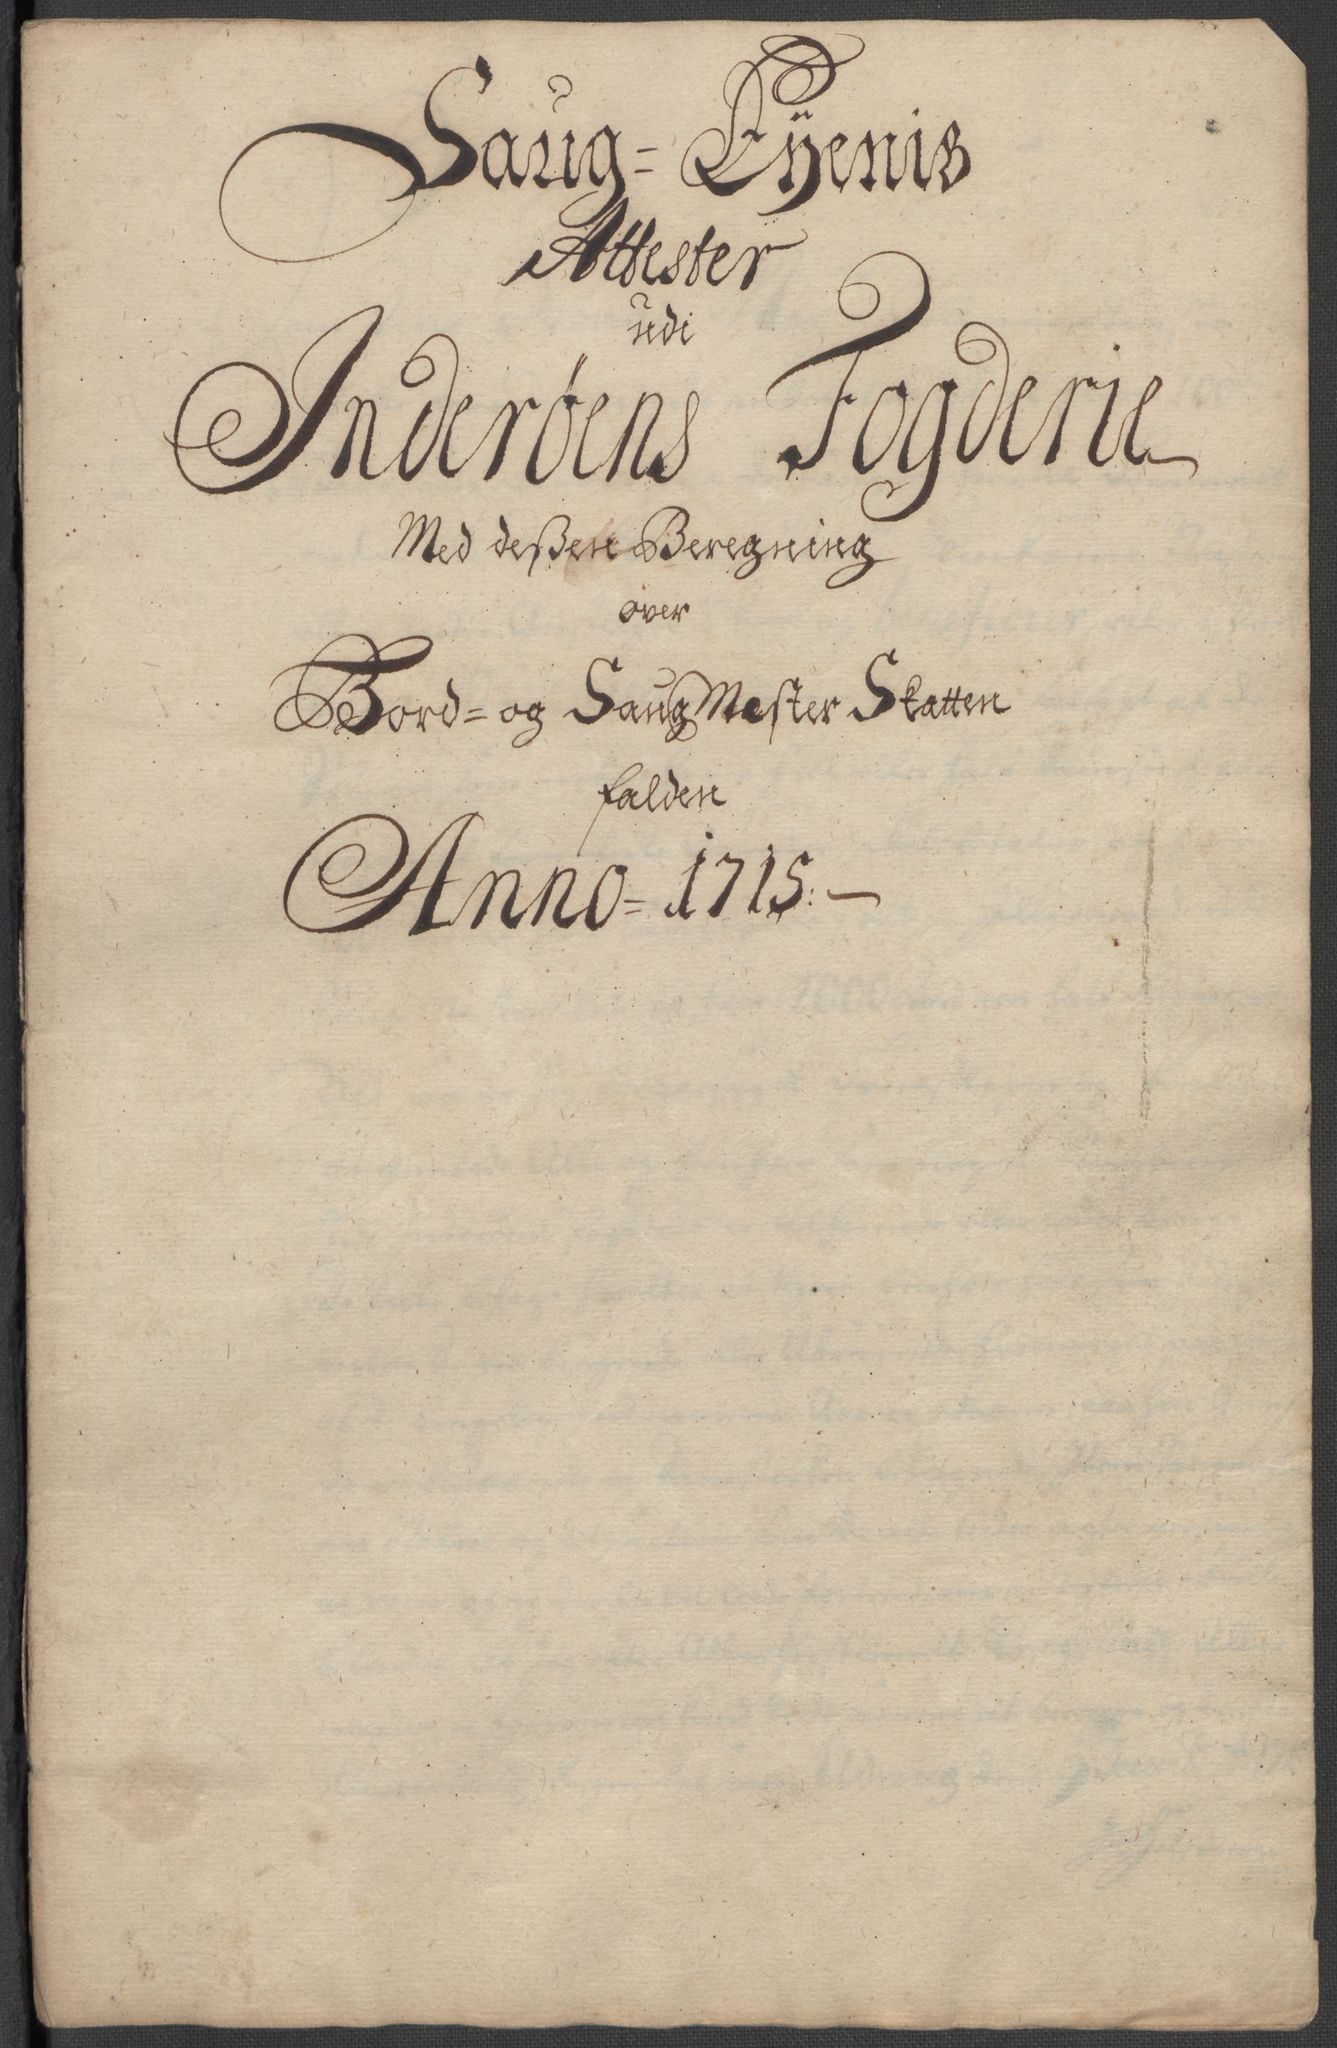 Saug= Eyenis
Attester
udi
Inderöens Fogderie
Med deßen Beregning
over
Bord= og Saug Mester Skatten
falden
Anno= 1715.